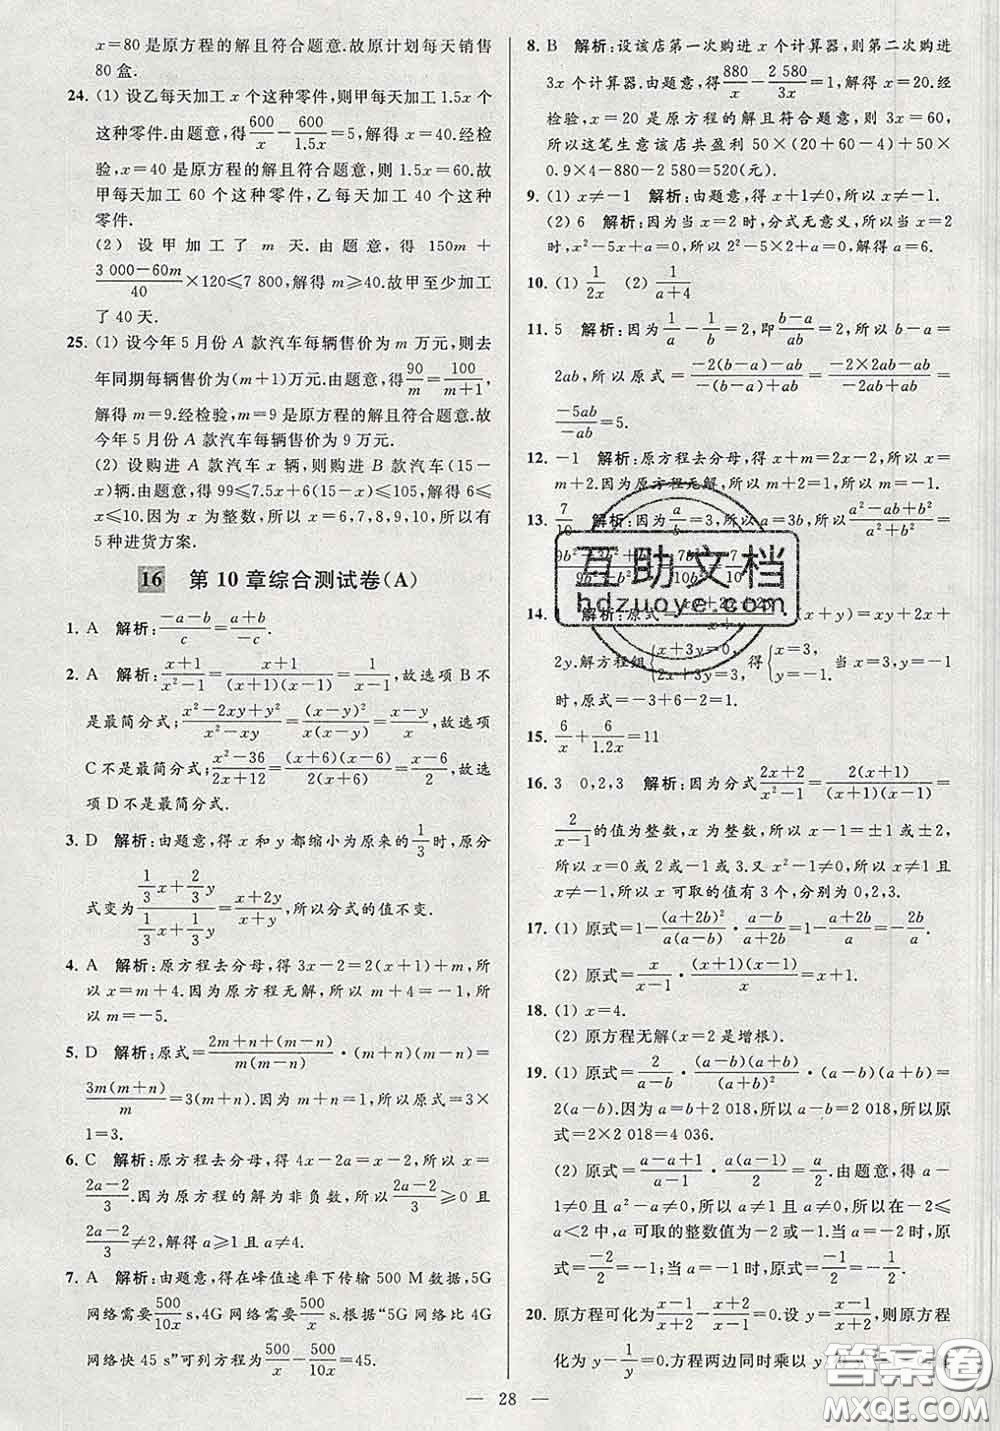 x=80是原方程的解且符合题意.故原计划每天销售
80盒.
24. (1) 设乙每天加工x个这种零件,则甲每天加工1.5x个
这种零件.由题意,得600/x-600/1.5x=5,解得x=40.经检
验,x=40是原方程的解且符合题意,则1.5x=60.故
甲每天加工60个这种零件,乙每天加工40个这种
零件.
(2) 设甲加工了m天.由题意,得150m+
(3 000-60m)/40×120≤7 800,解得m≥40.故甲至少加工
了40天.
25. (1) 设今年5月份A款汽车每辆售价为m万元,则去
年同期每辆售价为(m+1)万元.由题意,得90/m=100/(m+1),
解得m=9.经检验,m=9是原方程的解且符合题意.故
今年5月份A款汽车每辆售价为9万元.
(2) 设购进A款汽车x辆,则购进B款汽车(15-
x)辆.由题意,得99≤7.5x+6(15-x)≤105,解得6≤
x≤10.因为x为整数,所以x=6,7,8,9,10,所以有
5种进货方案.
16 第10章综合测试卷(A)
1. A 解析:(-a-b)/c=(a+b)/-c.
2. A 解析:(x+1)/(x²-1)=(x+1)/((x+1)(x-1))=1/(x-1),故选项B不
是最简分式;(x²-2xy+y²)/(x²-xy)=(x-y)²/(x(x-y))=(x-y)/x,故选项
C不是最简分式;(x²-36)/(2x+12)=((x+6)(x-6))/(2(x+6))=(x-6)/2,故选
项D不是最简分式.
3. D 解析:由题意,得x和y都缩小为原来的1/3时,原分
式变为(1/3x+2/3y)/(1/3x+1/3y)=(x+2y)/(x+y),所以分式的值不变.
4. A 解析:原方程去分母,得3x-2=2(x+1)+m,所
以x=m+4.因为原方程无解,所以m+4=-1,所
以m=-5.
5. D 解析:原式=(2m+n+(m-n))/(m(m-n))·(m+n)(m-n)=
3m(m+n)/m=3(m+n).因为m+n=1,所以原式=3×
1=3.
6. C 解析:原方程去分母,得4x-2a=x-2,所以x=
(2a-2)/3.因为原方程的解为非负数,所以(2a-2)/3≥0且
(2a-2)/3≠2,解得a≥1且a≠4.
7. A 解析:由题意,得在峰值速率下传输500 M数据,5G
网络需要500/10x s,4G网络需要500/x s,根据“5G网络比4G
网络快45 s”可列方程为500/x-500/10x=45.
8. B 解析:设该店第一次购进x个计算器,则第二次购进
3x个计算器.由题意,得880/x-2 580/3x=1,解得x=20.经
检验,x=20是原方程的解且符合题意,则3x=60,
所以这笔生意该店共盈利50×(20+60-4)+50×
0.9×4-880-2 580=520(元).
9. (1) x≠-1 解析:由题意,得x+1≠0,所以x≠-1.
(2) 6 解析:因为当x=2时,分式无意义,所以当x=2
时,x²-5x+a=0,所以2²-5×2+a=0,解得a=6.
10. (1) 1/2x (2) 1/(a+4)
11. 5 解析:因为1/a-1/b=2,即(b-a)/ab=2,所以b-a=
2ab,所以原式=(-2(b-a)-ab)/(-(b-a)+ab)=(-2×2ab-ab)/(-2ab+ab)=
-5ab/-ab=5.
12. -1 解析:原方程去分母,得x+m=2x-2,所以x=
m+2.因为原方程无解,所以m+2=1,所以m=-1.
13. 7/10 解析:因为a/b=3,所以a=3b,所以(a²-ab+b²)/(a²+b²)=
14. 解析:原式=(x+y)=xy+2x+
2y.解方程组{x+3y=0,2x+3y=3,得{x=3,y=-1.当x=3,y=-1
时,原式=-3+6-2=1.
15. 6/x+6/1.2x=11
16. 3 0,2,3 解析:因为分式(2x+2)/(x²-1)=2(x+1)/((x+1)(x-1))=
2/(x-1)的值为整数,x为整数,所以x-1=±1或±2,
所以x=0或2或-1或3.又x²-1≠0,所以x≠1且
x≠-1,所以x可取的值有3个,分别为0,2,3.
17. (1) 原式=1-(a+2b)²/(a(a-b))·(a-b)/(a+2b)=1-(a+2b)/a=-2b/a.
(2) 原式=x/(x-1)·((x+1)(x-1))/x=x+1.
18. (1) x=4.
(2) 原方程无解(x=2是增根).
19. (1) 原式=2/(a-b)·((a-b)(a+b))/(a+b)²·(a-b)(a+b)=
2(a-b).因为a=b+2 018,所以a-b=2 018,所以原
式=2×2 018=4 036.
(2) 原式=(a-a+1)/(a-1)·a(a-1)/2=a/2.由题意,得a-
1≠0且a²-a≠0,所以a≠1且a≠0,所以在-2≤
a<2中,a可取的整数值为-2或-1.当a=-2时,原
式=-2/2=-1;当a=-1时,原式=-1/2=-1/2.
20. 原方程可化为(x-1)/(x+2)-(x+2)/(x-1)=0.设y=(x-1)/(x+2),则原方程
化为y-1/y=0.方程两边同时乘以
互助文档
hdzuoye.com
答案圈
MXQE.COM
— 28 —